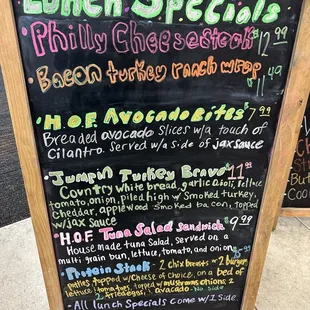 Lunch Specials
Philly Cheesesteak $12.99
Bacon turkey ranch wrap
$11.49
H.O.F. Avocado Bites $7.99
Breaded avocado Slices w/a touch of
Cilantro. Served w/a side of jax Sauce
Jumpin Turkey Bravo $11.99
Country white bread, garlic aioli, lettuce
tomato, onion, piled high w/ Smoked turkey,
cheddar, applewood Smoked bacon, topped
w/jax Sauce
H.O.F. Tuna Salad Sandwich $9.99
House made tuna Salad, Served on a
multi grain bun, lettuce, tomato, and onion
Protein Stack - 2 chix breasts or 2 burger
patties topped w/cheese of choice, on a bed of
lettuce, tomatoes, topped w/ mushrooms onions 2
2 fried eggs, avocado. No Side
- All lunch Specials Come w/1 Side.